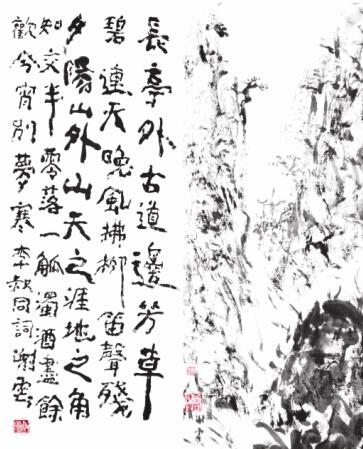 長亭外古道邊芳草
碧連天晚風拂柳笛聲殘
夕陽山外山天之涯地之角
知交半零落一觚濁酒盡餘
歡今宵別夢寒 李叔同詞 謝雲